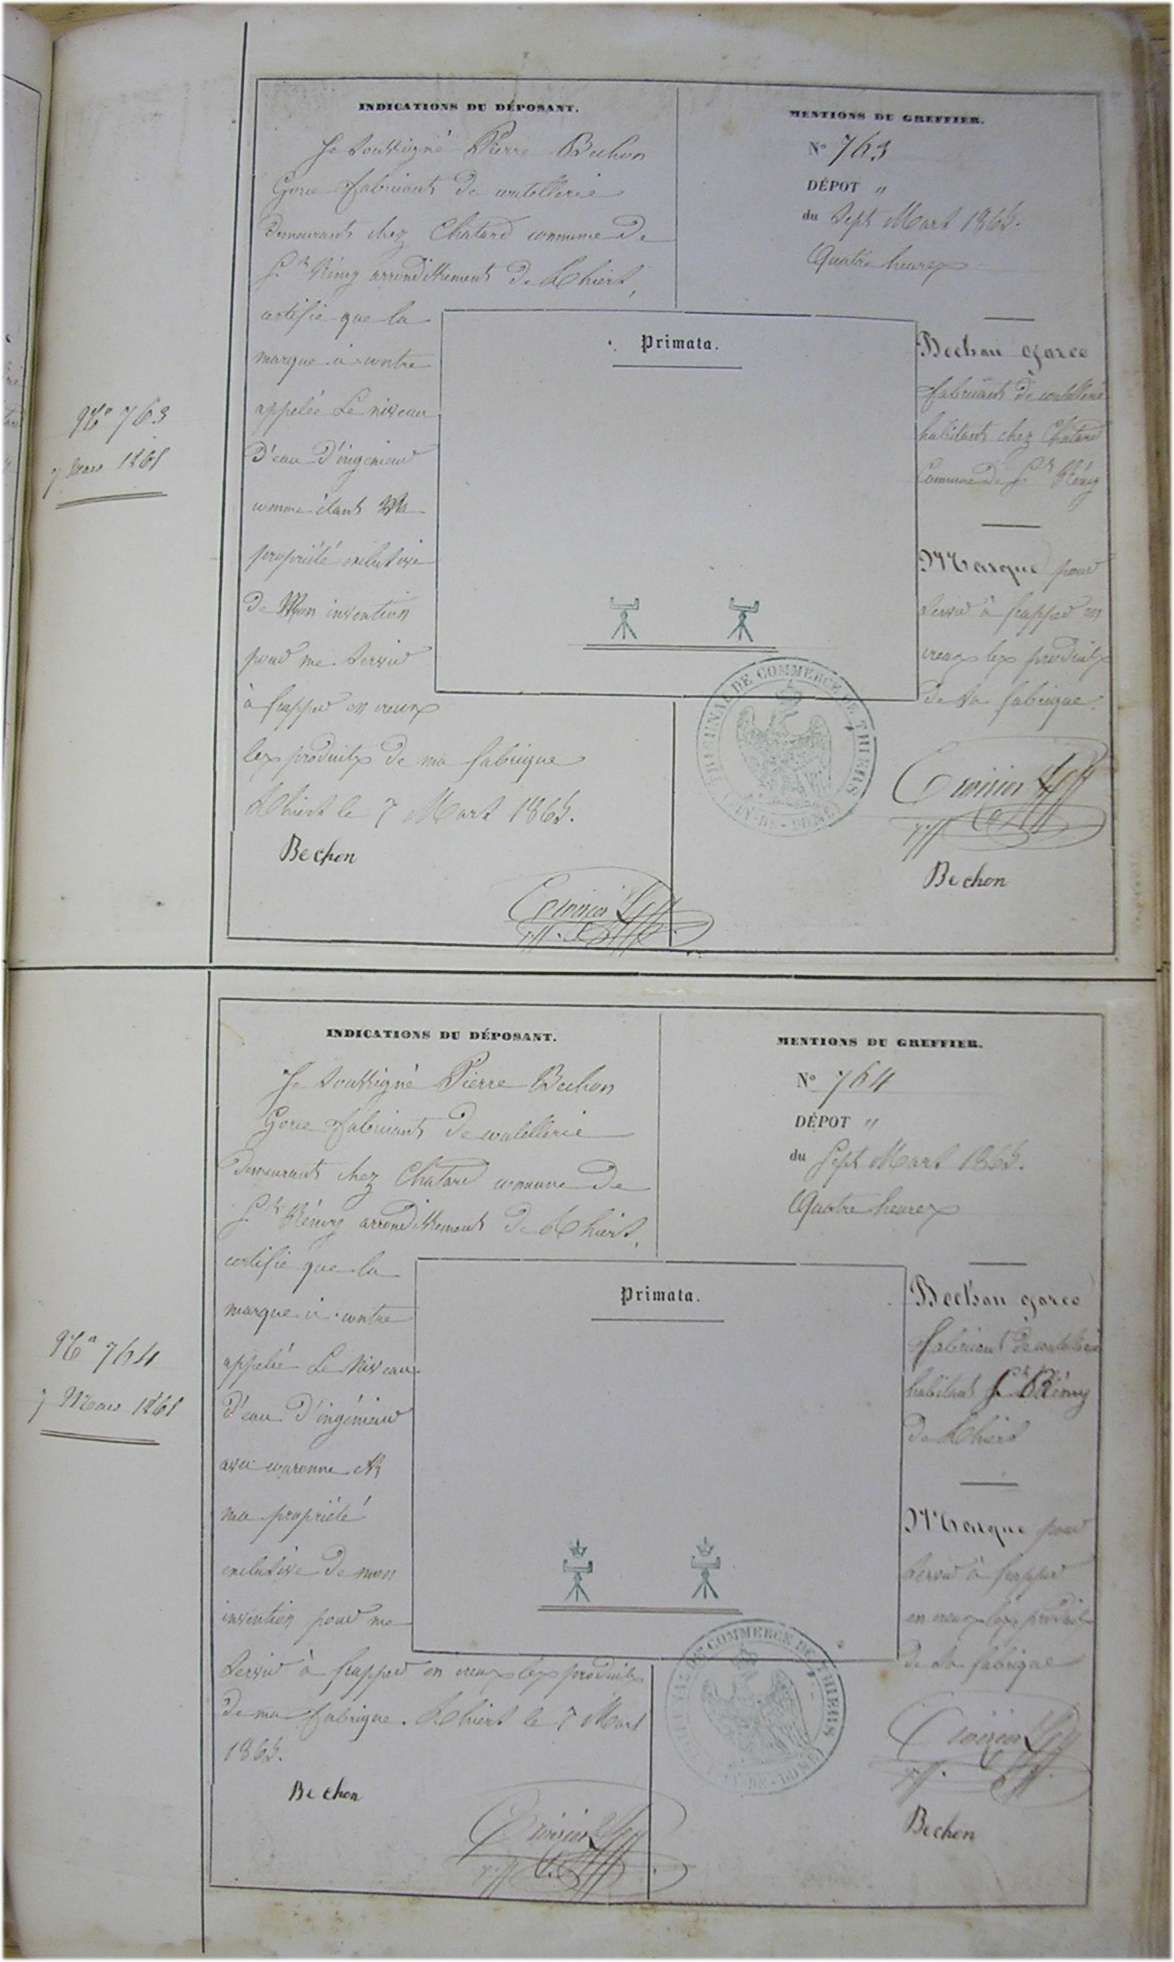 INDICATIONS DU DÉPOSANT.
Je soussigné Pierre Bechon
Gorce fabricant de coutellerie
demeurant chez Chatard commune de
St Rémy arrondissement de Thiers,
certifie que la
marque ci-contre
appelée Le niveau
d'eau d'ingénieur
comme étant ma
propriété exclusive
de Mon invention
pour me servir
à frapper en creux
les produits de ma fabrique
Thiers le 7 Mars 1865.
Bechon
MENTIONS DU GREFFIER.
No 763
DÉPOT "
du Sept Mars 1865.
Quatre heures
Bechon Gorce
fabricant de coutellerie
habitant chez Chatard
Commune de St Rémy
Marque pour
servir à frapper en
creux les produits
de sa fabrique.
Bechon
Primata.
TRIBUNAL DE COMMERCE DE THIERS
PUY-DE-DOME
No 763
7 Mars 1865
INDICATIONS DU DÉPOSANT.
Je soussigné Pierre Bechon
Gorce fabricant de coutellerie
demeurant chez Chatard commune de
St Rémy arrondissement de Thiers,
certifie que la
marque ci-contre
appelée Le Niveau
d'eau d'ingénieur
avec couronne est
ma propriété
exclusive de mon
invention pour me
servir à frapper en creux les produits
de ma fabrique. Thiers le 7 Mars
1865.
Bechon
MENTIONS DU GREFFIER.
No 764
DÉPOT "
du Sept Mars 1865.
Quatre heures
Bechon Gorce
fabricant de coutellerie
habitant St Rémy
de Thiers
Marque pour
servir à frapper
en creux les produits
de sa fabrique
Bechon
Primata.
TRIBUNAL DE COMMERCE DE THIERS
PUY-DE-DOME
No 764
7 Mars 1865